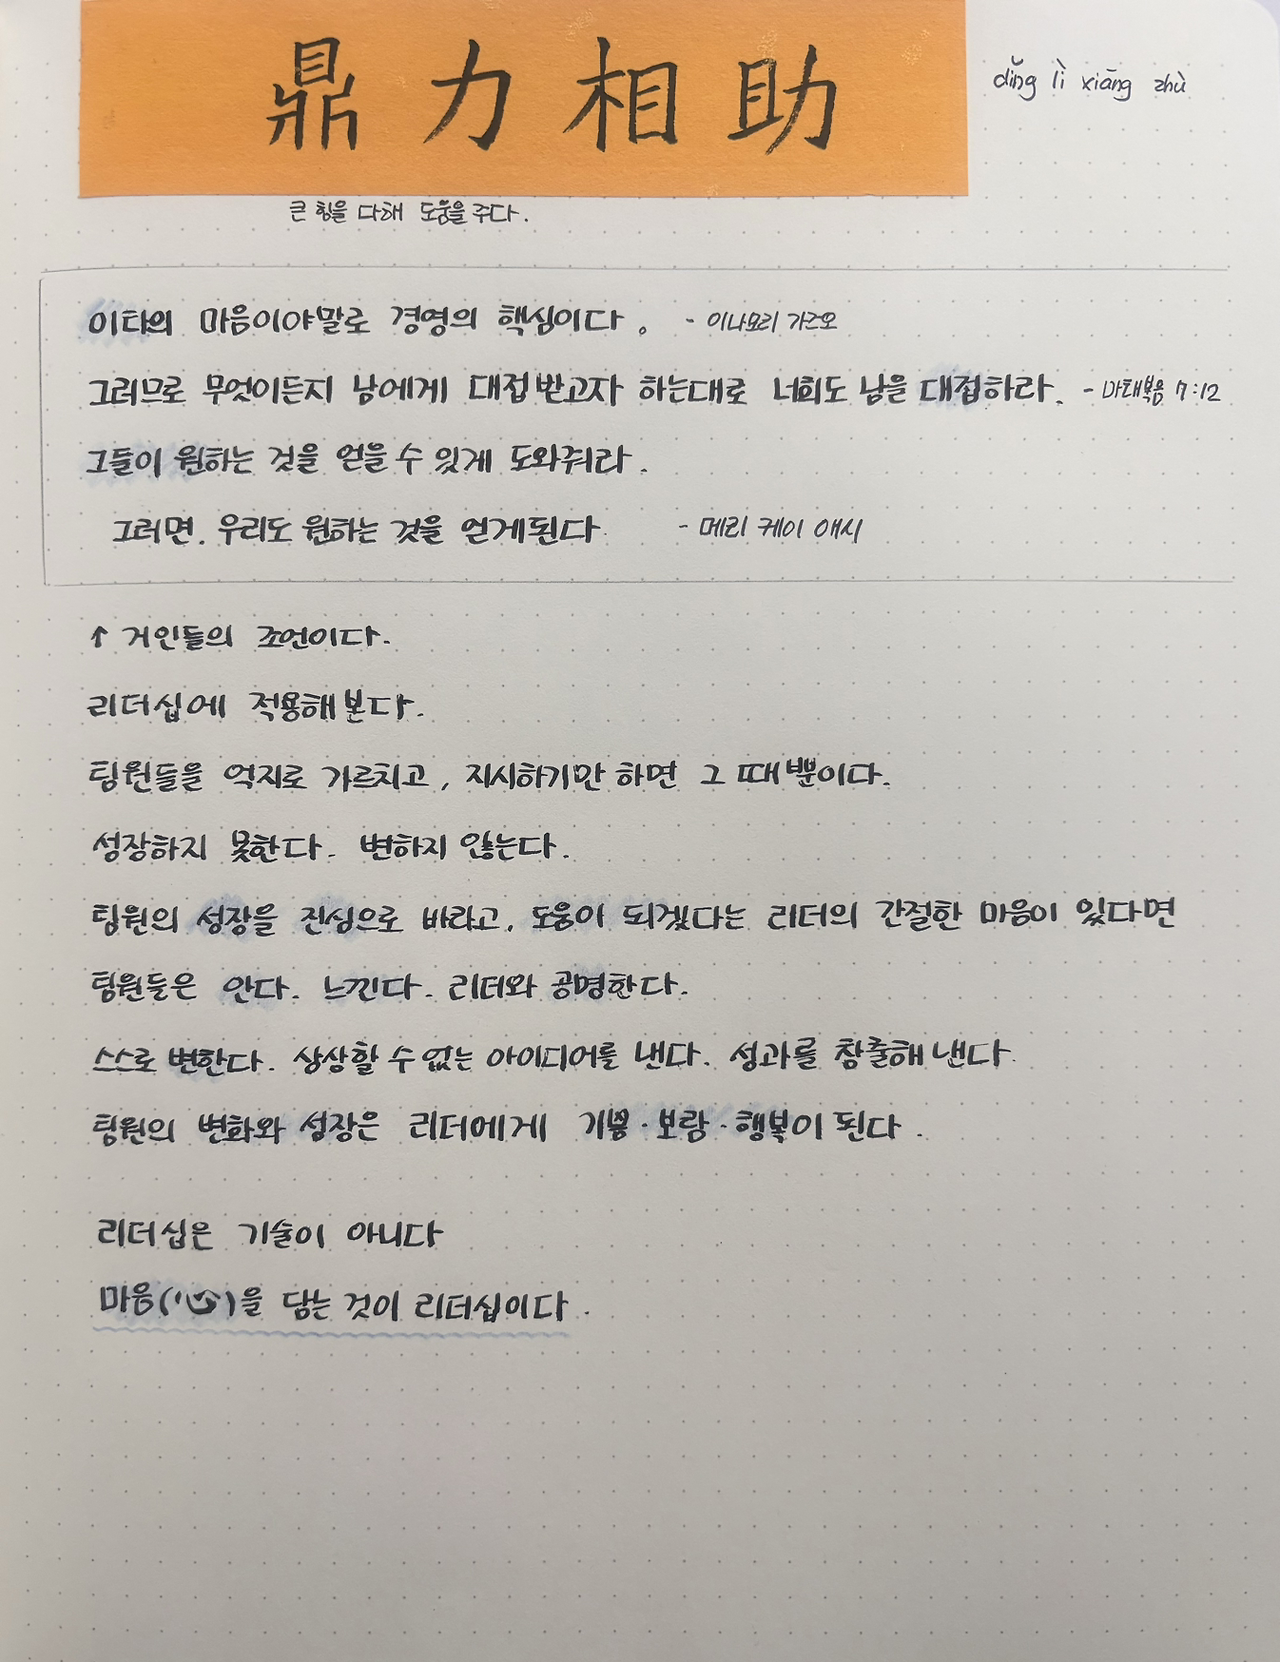 鼎力相助
dǐng lì xiāng zhù
큰 힘을 다해 도움을 주다.
이타의 마음이야말로 경영의 핵심이다. - 이나모리 가즈오
그러므로 무엇이든지 남에게 대접받고자 하는대로 너희도 남을 대접하라. - 마태복음 7:12
그들이 원하는 것을 얻을 수 있게 도와줘라.
그러면, 우리도 원하는 것을 얻게된다 - 메리 케이 애시
↑ 거인들의 조언이다.
리더십에 적용해본다.
팀원들을 억지로 가르치고, 지시하기만 하면 그 때뿐이다.
성장하지 못한다. 변하지 않는다.
팀원의 성장을 진심으로 바라고, 도움이 되겠다는 리더의 간절한 마음이 있다면
팀원들은 안다. 느낀다. 리더와 공명한다.
스스로 변한다. 상상할 수 없는 아이디어를 낸다. 성과를 창출해 낸다.
팀원의 변화와 성장은 리더에게 기쁨·보람·행복이 된다.
리더십은 기술이 아니다
마음(心)을 담는 것이 리더십이다.